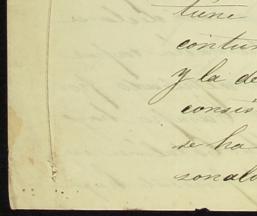 tiene
contun
y la de
consis
se ha
sonal